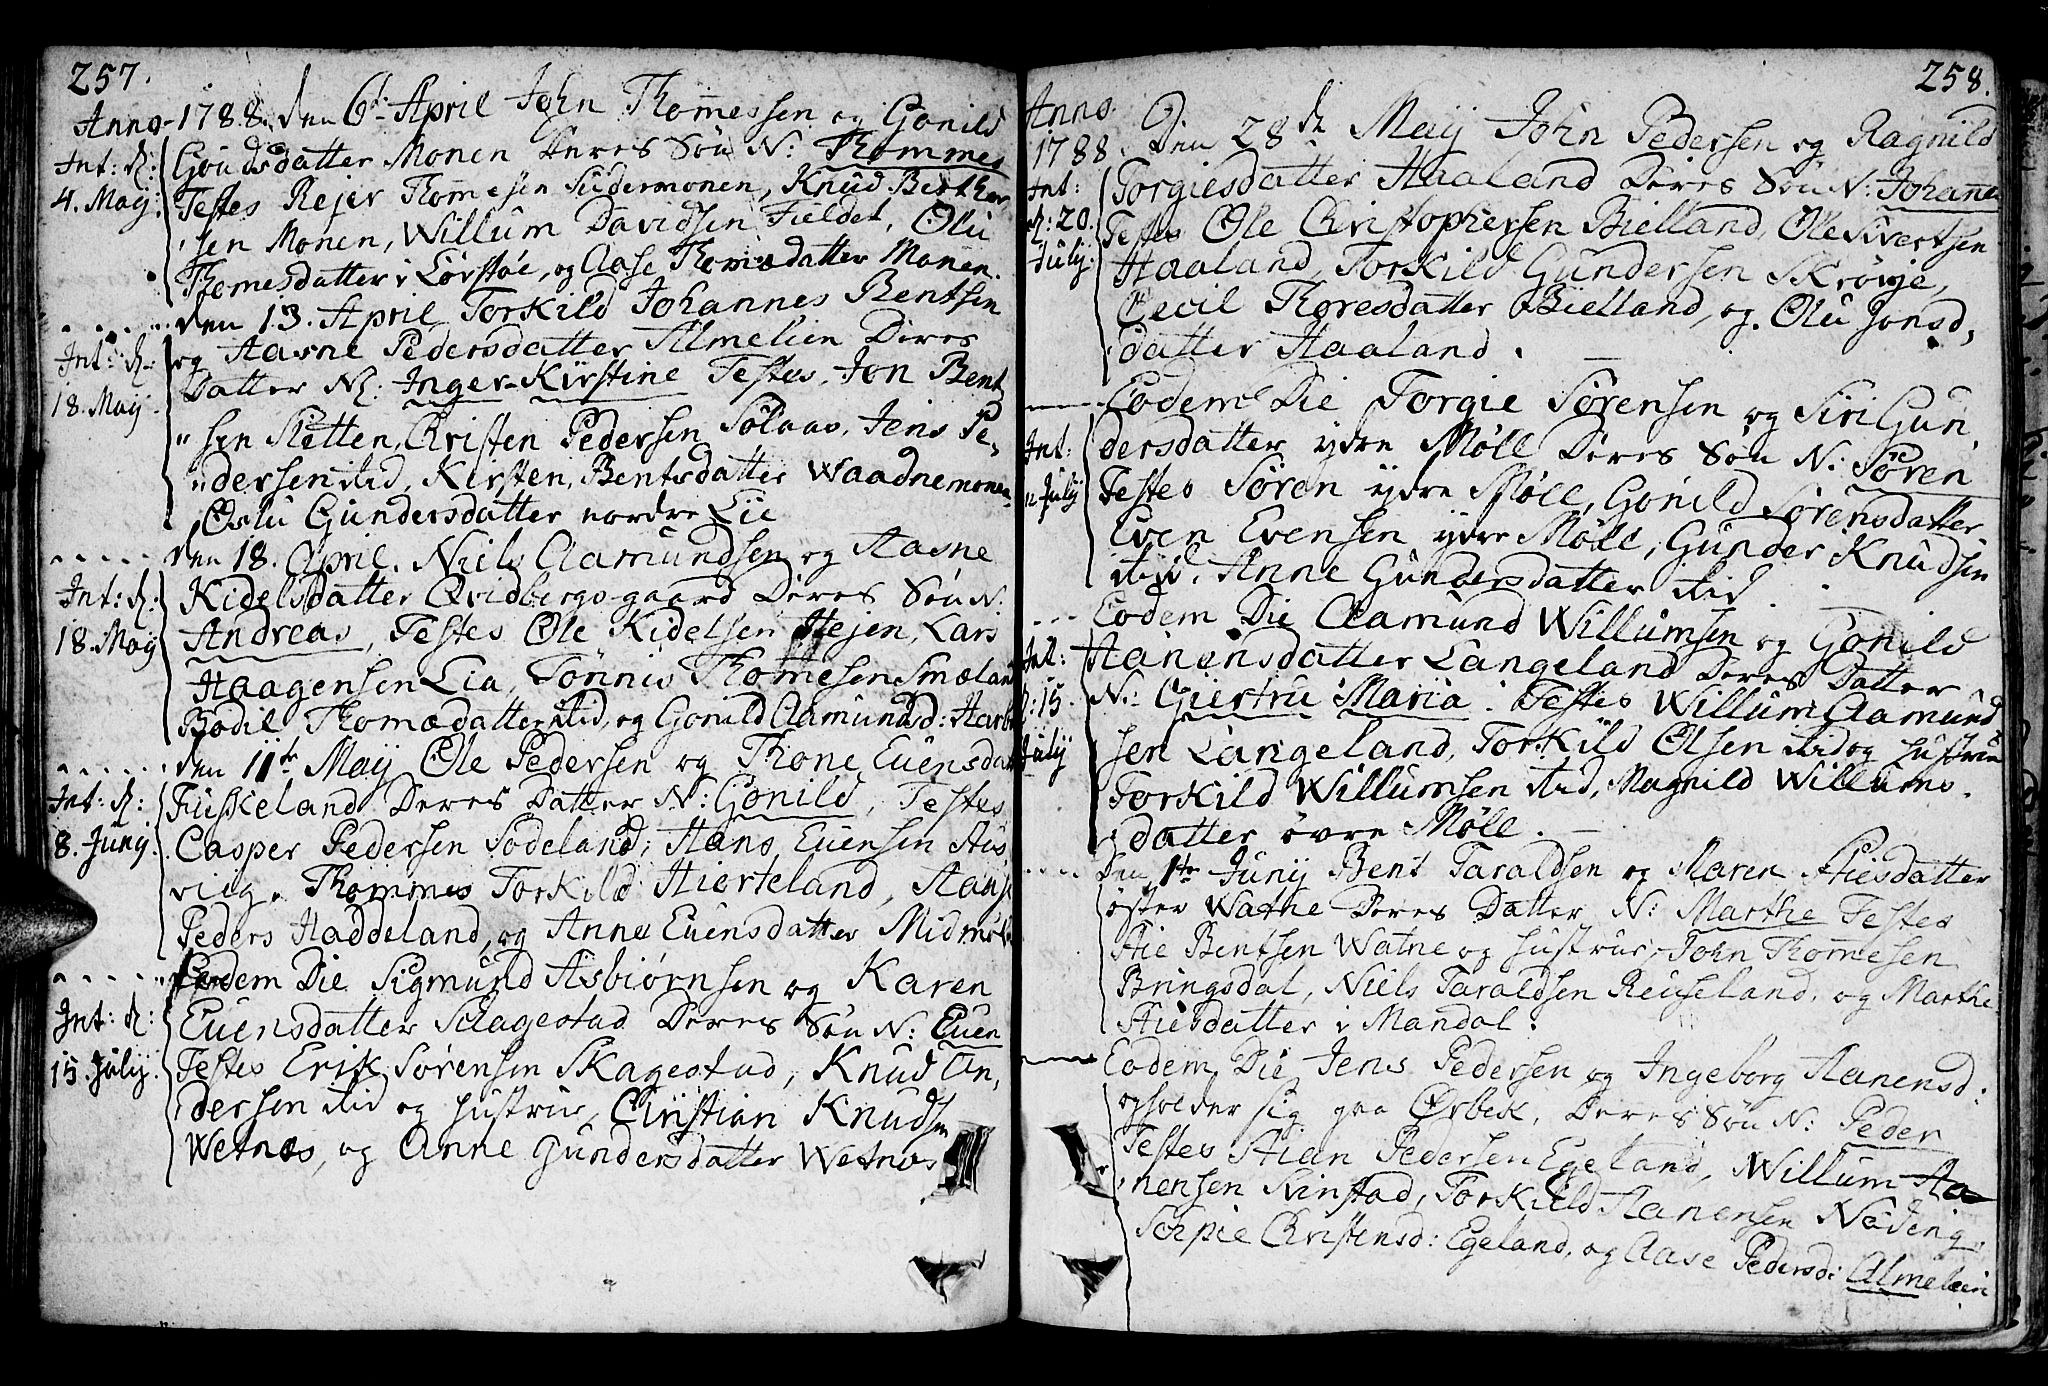 257.
Anno 1788. den 6t April John Thomessen og Gonild
Int: K: Goudsdatter Monen Deres Søn N: Thommes
4. Maij. Testes Rejer Thomesen Sudermonen, Knud Berthor
sen Monen, Willum Davidsen Fieldet, Olu
Thomesdatter i Lørstøe, og Aase Thomædatter Monen.
den 13. April Torkild Johannes Bentsen
Int: K: og Aasne Pedersdatter Almelien Deres
18. Maij. Datter N: Inger Kirstine Testes, Jon Bent
sen Sletten, Christen Pedersen Solaas, Jens Pe-
dersen ibid, Kersten Bentsdatter Waadnemonen
Oslu Gundersdatter nordre Lie
den 18. April. Niels Aamundsen og Aasne
Int: K: Kidelsdatter Qvidbergsgaard Deres Søn N:
18. Maij Andreas, Testes Ole Kidelsen Hejen, Lars
Haagensen Lia, Tønnis Thomesen Smæland
Bodil Thomædatter ibid, og Gonild Aamundsd:
den 11te Maij Ole Pedersen og Thone Euensda
Int: K: Fuskeland Deres Datter N: Gonild, Testes
8. Junij. Casper Pedersen Sodeland, Hans Euensen Aus
viig, Thommes Torkild Hierteland,
Peders Haddeland, og Anne Euensdatter
Eodem Die Sigmund Asbiørnsen og Karen
Int: K: Euensdatter Schagestad Deres Søn N: Euen
15. Julij. Testes Erik Sørensen Skagestad, Knud An,
dersen ibid og hustrue, Christian Knudsen
Wetnæs, og Anne Gundersdatter Wetnæs
258.
Anno
1788. Den 28de Maij John Pedersen og Ragnild
Int: Torgiesdatter Haaland Deres Søn N: Johanes
K: 20. Testes Ole Christophersen Bielland, Ole Sivertsen
Julij. Haaland, Torkild Gundersen Skrøvje,
Cecil Thoresdatter Bielland, og Olu Jonsd,
datter Haaland.
Eodem Die Torgie Sørensen og Siri Gun
Int: dersdatter ydre Møll Deres Søn N: Søren
Julij Testes Søren ydre Møll, Gonild Sørensdatter
Even Evensen ydre Møll, Gunder Knudsen
ibid, Anne Gundersdatter ibid.
Eodem Die Aamund Willumsen og Gonild
Int: Hanensdatter Langeland Deres Datter
K: 15. N: Giertru Maria. Testes Willum Aamund
Julij sen Langeland, Torkild Olsen ibid og hustrue
Torkild Willumsen ibid, Magnild Willums.
datter øvre Møll.
Den 1te Junij Bent Taraldsen og Maren Aiesdatter
øster Watne Deres Datter N: Marthe Testes
Aie Bentsen Watne og hustrue, John Thomesen
Bringsdal, Niels Taraldsen Reuseland, og Marthe
Aiesdatter i Mandal.
Eodem Die Jens Pedersen og Ingeborg Hanensd:
opholder sig paa Ørbek, Deres Søn N: Peder
Testes Stian Pedersen Egeland, Willum Aa
nensen Svinstad, Torkild Aanensen Nøding,
Sophie Christensd: Egeland, og Aase Pedersd: Almelien